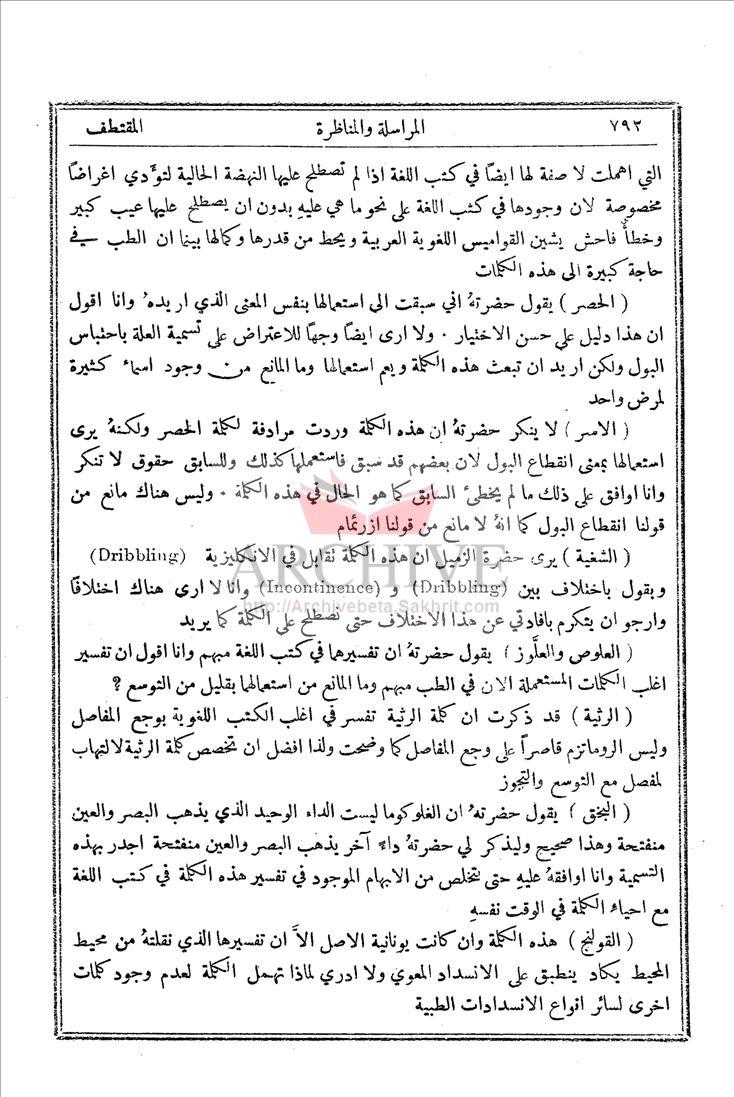 ٧٩٢ المراسلة والمناظرة المقتطف
التي اهملت لا صفة لها ايضاً في كتب اللغة اذا لم تصطلح عليها النهضة الحالية لتوَّدي اغراضاً
مخصوصة لان وجودها في كتب اللغة على نحو ما هي عليهِ بدون ان يصطلح عليها عيب كبير
وخطأ فاحش يشين القواميس اللغوية العربية ويحط من قدرها وكمالها بينما ان الطب في
حاجة كبيرة الى هذه الكلمات
( الحصر ) يقول حضرتهُ اني سبقت الى استعمالها بنفس المعنى الذي اريدهُ وانا اقول
ان هذا دليل على حسن الاختيار . ولا ارى ايضاً وجهاً للاعتراض على تسمية العلة باحتباس
البول ولكن اريد ان تبعث هذه الكلمة ويعم استعمالها وما المانع من وجود اسماء كثيرة
لمرض واحد
( الاسر ) لا ينكر حضرتهُ ان هذه الكلمة وردت مرادفة لكلمة الحصر ولكنهُ يرى
استعمالها بمعنى انقطاع البول لان بعضهم قد سبق فاستعملها كذلك وللسابق حقوق لا تنكر
وانا اوافق على ذلك ما لم يخطئ السابق كما هو الحال في هذه الكلمة . وليس هناك مانع من
قولنا انقطاع البول كما انهُ لا مانع من قولنا ازرئمام
ARCHIVE
( الشغية ) يرى حضرة الزميل ان هذه الكلمة تقابل في الانكليزية (Dribbling)
ويقول باختلاف بين (Dribbling) و (Incontinence) وانا لا ارى هناك اختلافاً
http://Archivebeta.Sakhrit.com
وارجو ان يتكرم بافادتي عن هذا الاختلاف حتى نصطلح على الكلمة كما يريد
( العلوص والعلَّوز ) يقول حضرتهُ ان تفسيرها في كتب اللغة مبهم وانا اقول ان تفسير
اغلب الكلمات المستعملة الان في الطب مبهم وما المانع من استعمالها بقليل من التوسع ؟
( الرثية ) قد ذكرت ان كلمة الرثية تفسر في اغلب الكتب اللغوية بوجع المفاصل
وليس الروماتزم قاصراً على وجع المفاصل كما وضحت ولذا افضل ان تخصص كلمة الرثية لالتهاب
لمفصل مع التوسع والتجوز
( البخق ) يقول حضرتهُ ان الغلوكوما ليست الداء الوحيد الذي يذهب البصر والعين
منفتحة وهذا صحيح وليذكر لي حضرتهُ داءً آخر يذهب البصر والعين منفتحة اجدر بهذه
التسمية وانا اوافقهُ عليهِ حتى نتخلص من الابهام الموجود في تفسير هذه الكلمة في كتب اللغة
مع احياء الكلمة في الوقت نفسهِ
( القولنج ) هذه الكلمة وان كانت يونانية الاصل الاَّ ان تفسيرها الذي نقلتهُ من محيط
المحيط يكاد ينطبق على الانسداد المعوي ولا ادري لماذا تهمل الكلمة لعدم وجود كلمات
اخرى لسائر انواع الانسدادات الطبية